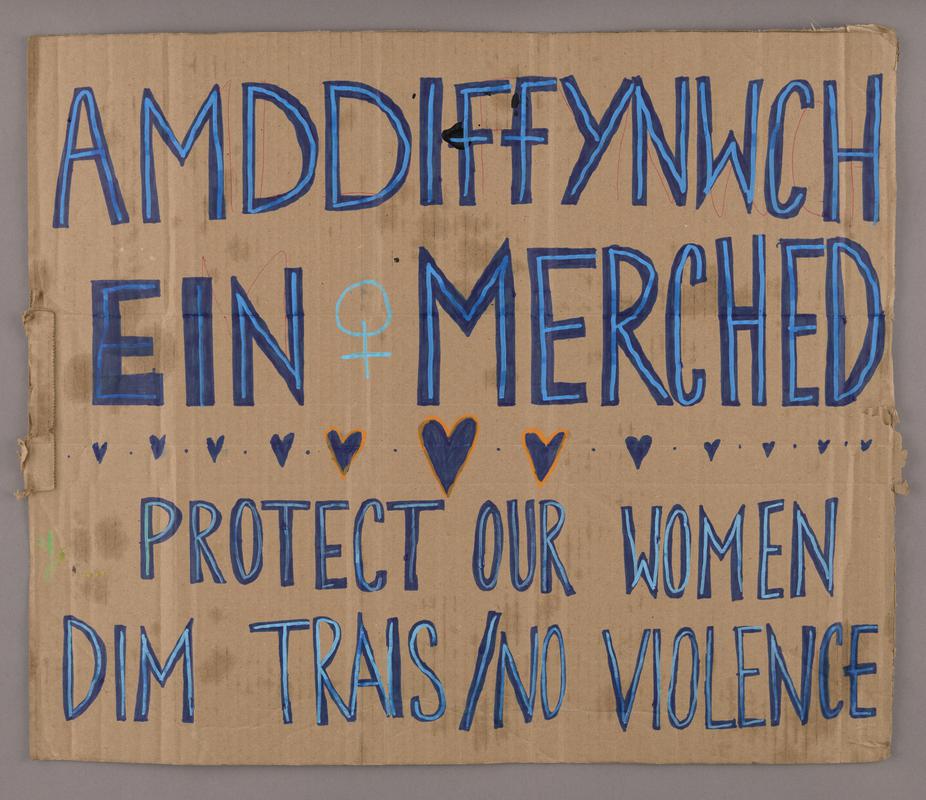 AMDDIFFYNWCH
EIN ♀ MERCHED
PROTECT OUR WOMEN
DIM TRAIS/NO VIOLENCE